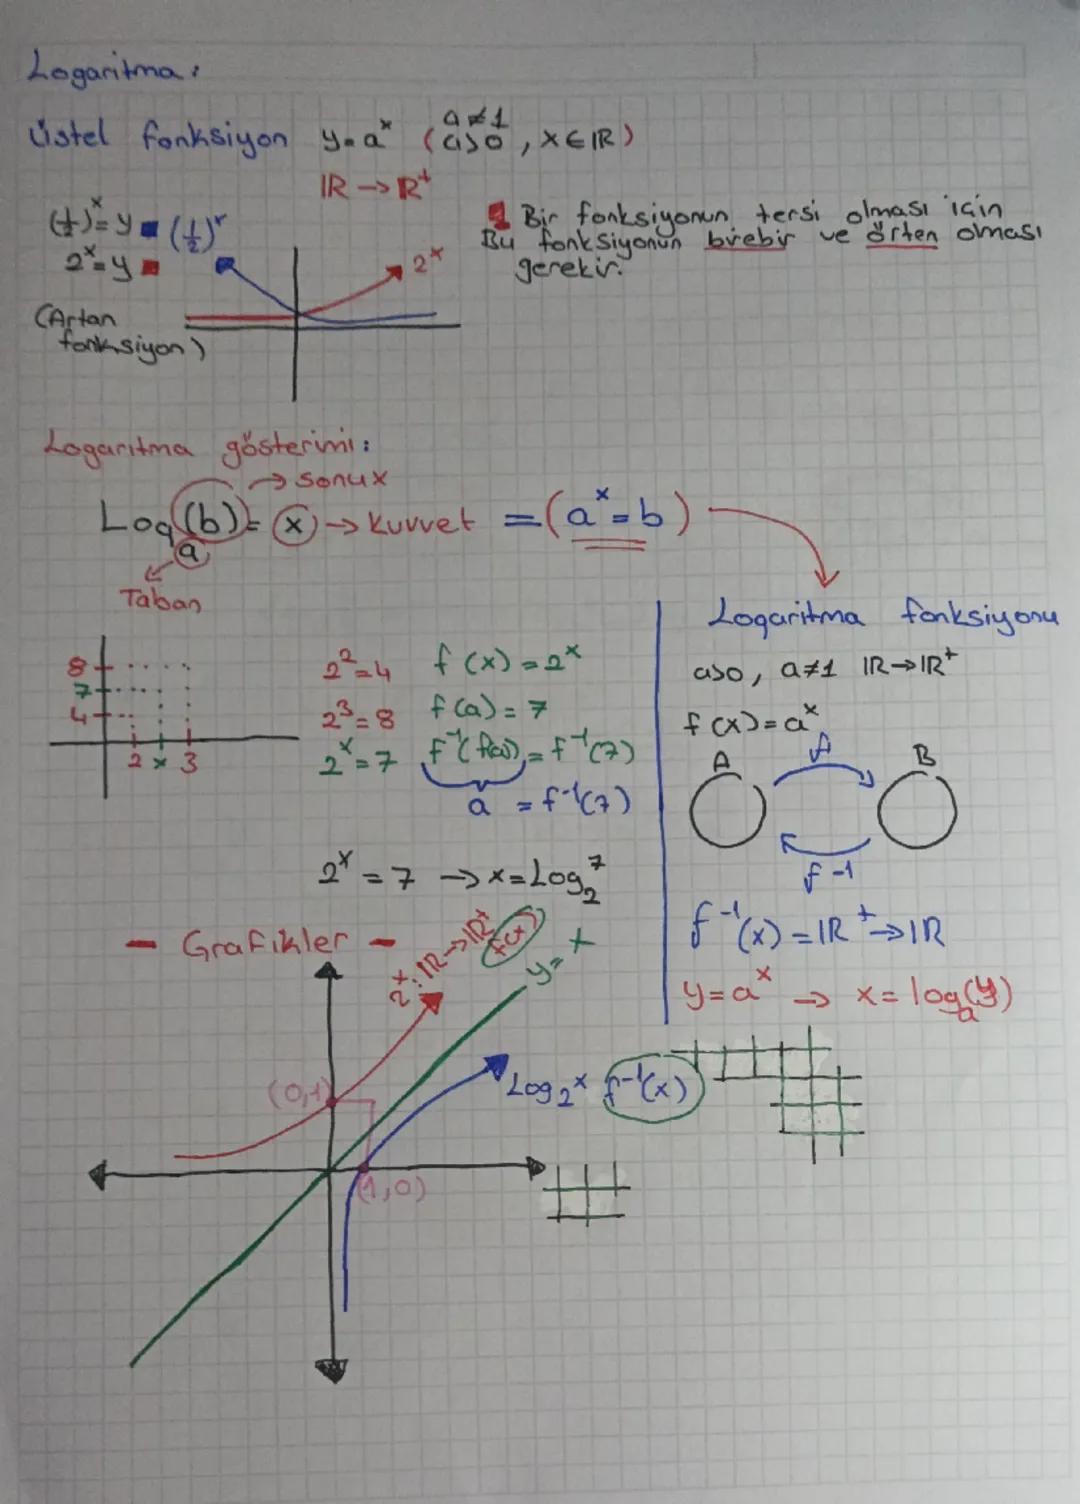 Logaritma:
Üstel fonksiyon y=a^x (a>0, a≠1, x∈IR)
IR → R⁺
(1/2)^x=y (1/2)^x
2^x=y 2^x
(Artan
fonksiyon)
Bir fonksiyonun tersi olması için
Bu fonksiyonun birebir ve örten olması
gerekir.
Logaritma gösterimi:
→ sonux
Log_a(b)=x → Kuvvet =(a^x=b)
Taban
Logaritma fonksiyonu
a>0, a≠1 IR→IR⁺
f(x)=a^x
A f B
f⁻¹
f⁻¹(x)=IR⁺→IR
y=a^x → x=log_a(y)
8
7
4
2 x 3
2²=4 f(x)=2^x
2³=8 f(a)=7
2^x=7 f⁻¹(f(a))=f⁻¹(7)
a =f⁻¹(7)
2^x=7 → x=Log₂7
- Grafikler -
2^x: IR→IR⁺ f(x)
y=x
(0,1)
Log₂x f⁻¹(x)
(1,0)